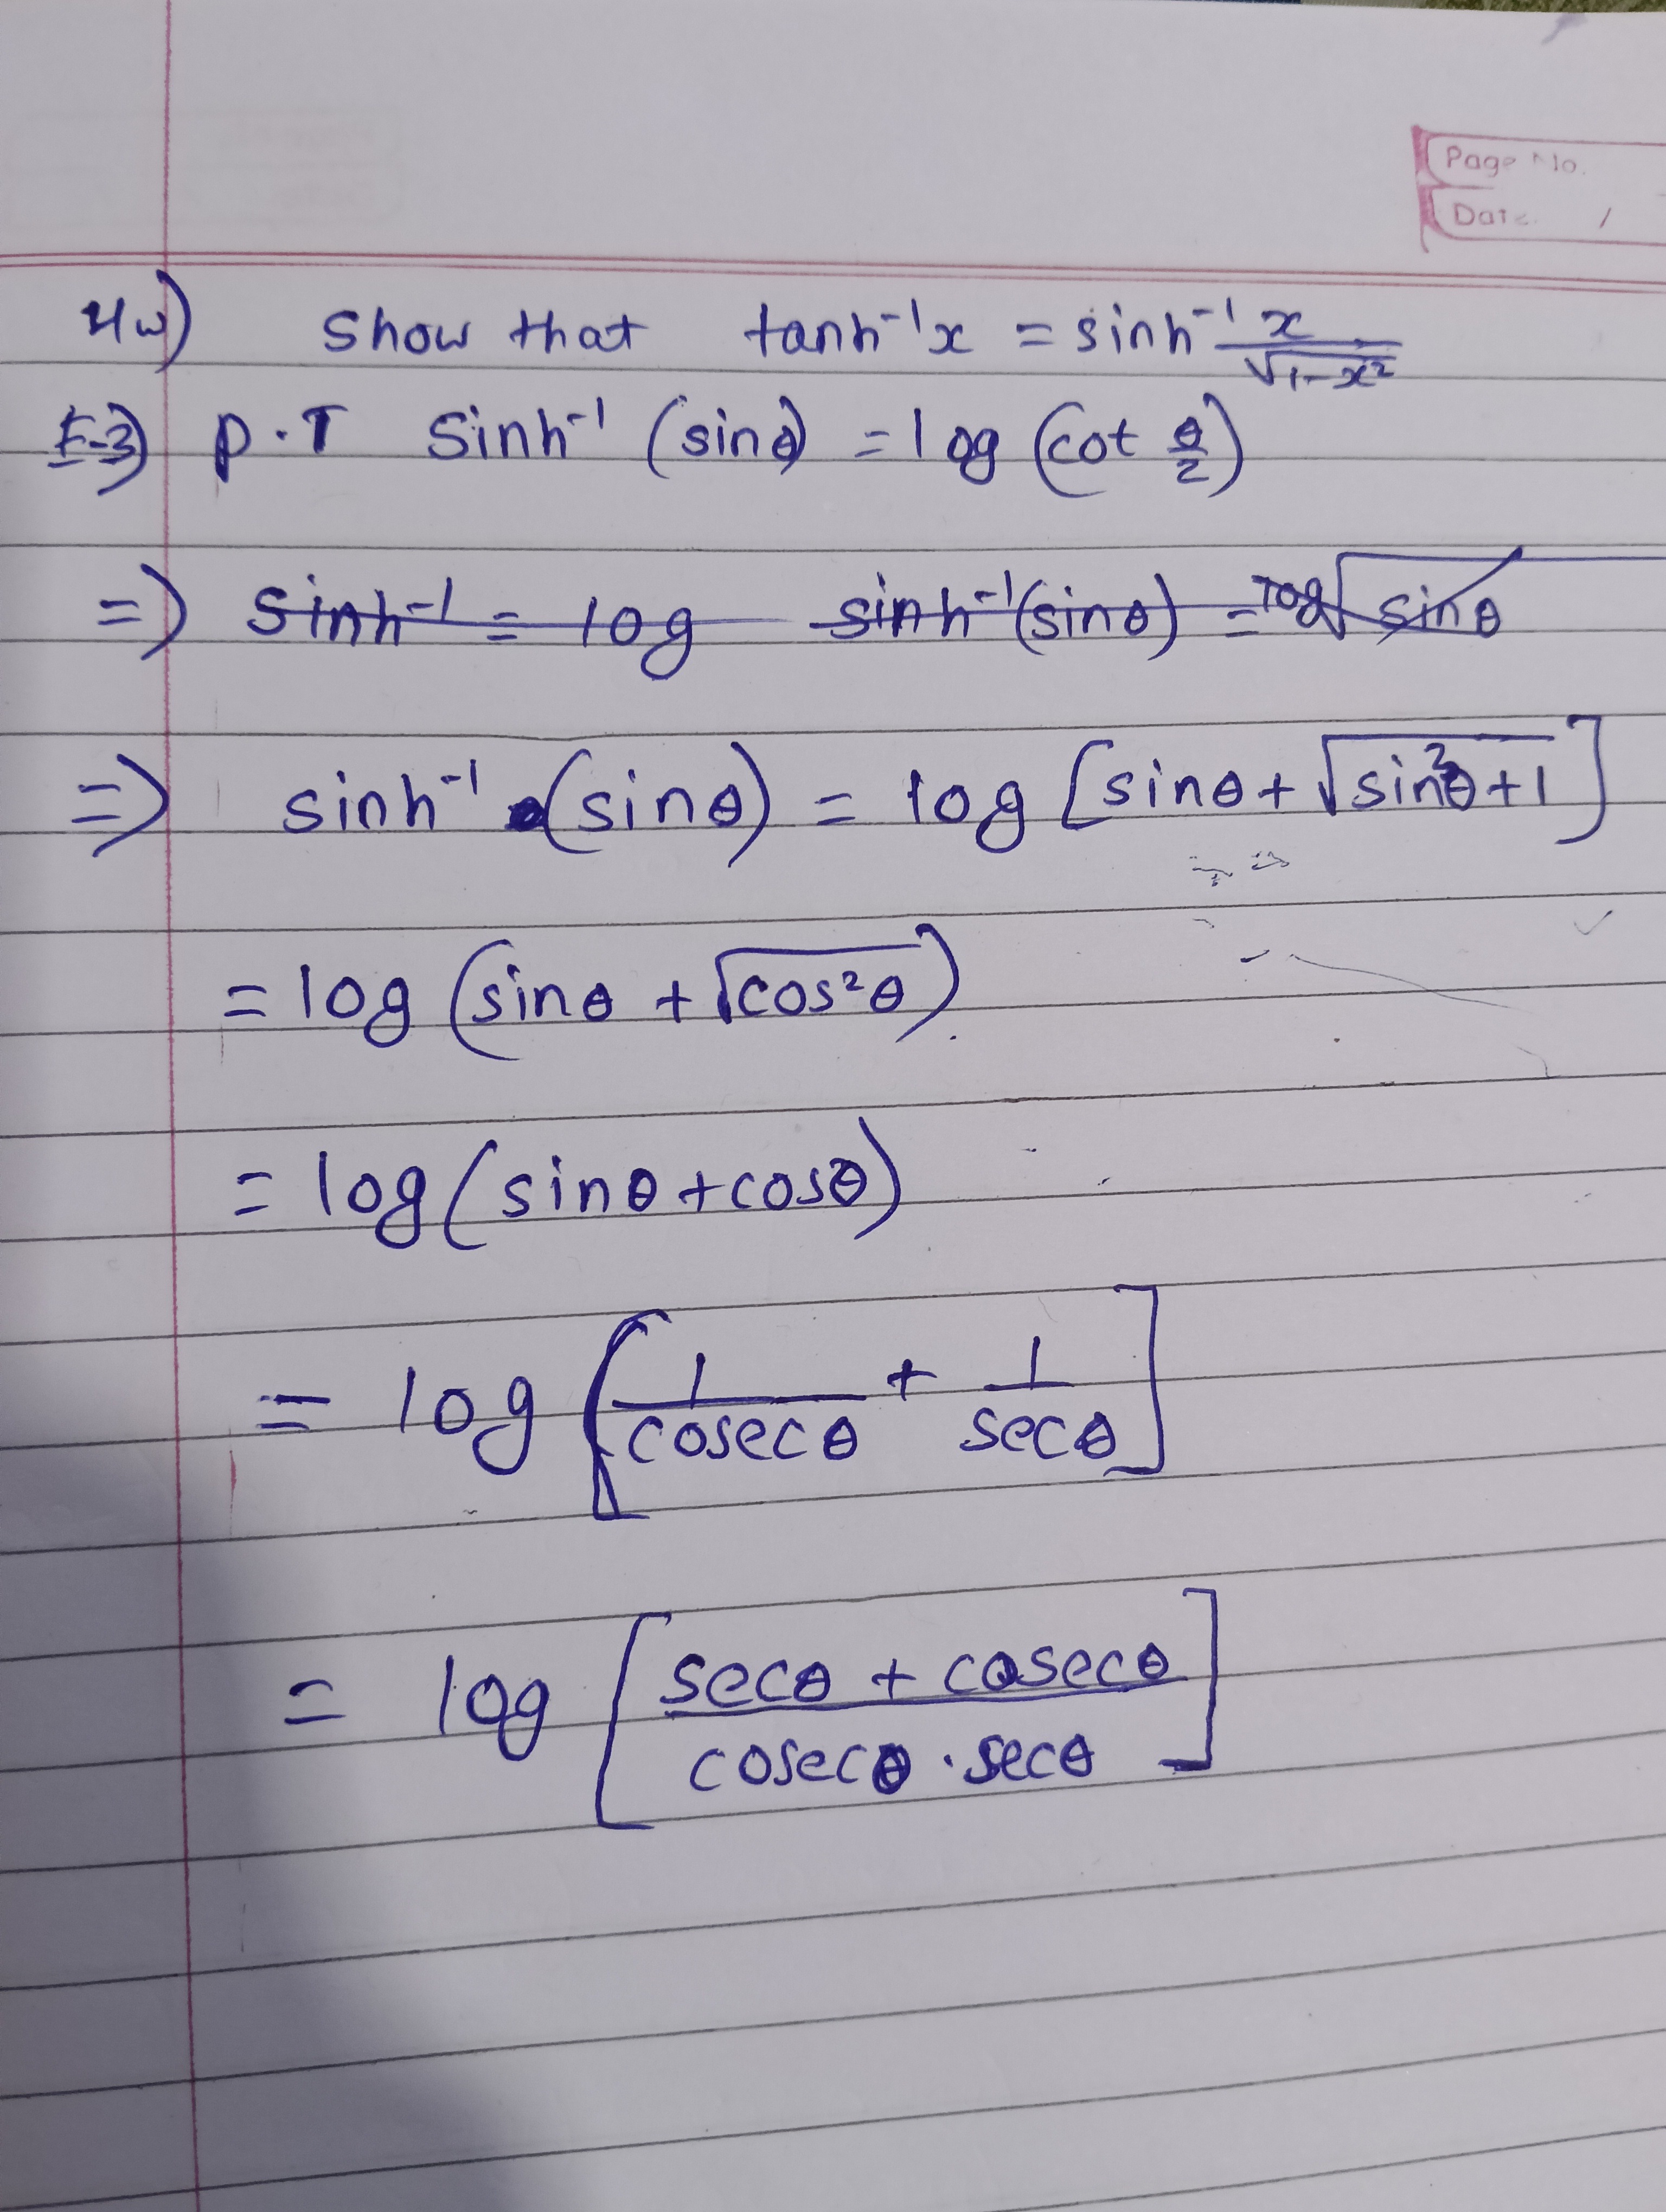 Page No.
Date /
Hw) show that tanh⁻¹x = sinh⁻¹ x/√1-x²
E-3) P.T sinh⁻¹ (sinθ) = log (cot θ/2)
=) sinh⁻¹ = log sinh⁻¹(sinθ) = log√sinθ
=) sinh⁻¹ (sinθ) = log [sinθ + √sin²θ+1]
= log (sinθ + √cos²θ)
= log (sinθ + cosθ)
= log [1/cosecθ + 1/secθ]
= log [secθ + cosecθ/cosecθ . secθ]